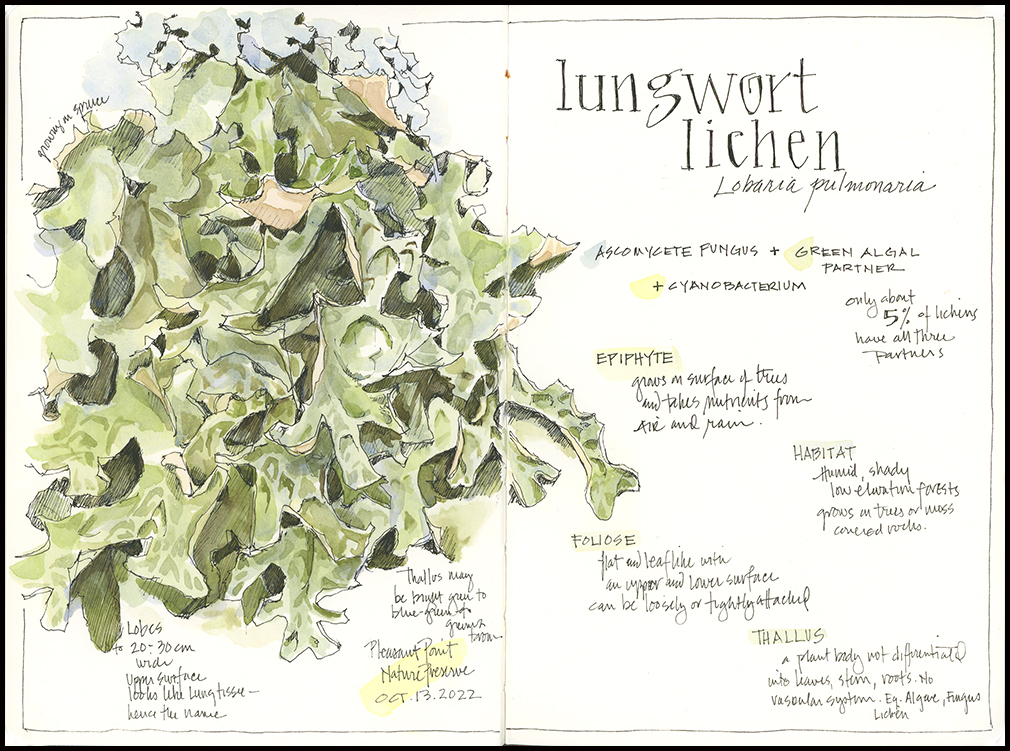 growing on spruce
lungwort
lichen
Lobaria pulmonaria
ASCOMYCETE FUNGUS + GREEN ALGAL
PARTNER
+ CYANOBACTERIUM
only about
5% of lichens
have all three
partners
EPIPHYTE
grows on surface of trees
and takes nutrients from
AIR and rain.
HABITAT
Humid, shady
low elevation forests
grows on trees or moss
covered rocks.
FOLIOSE
flat and leaflike with
an upper and lower surface
can be loosely or tightly attached
THALLUS
a plant body not differentiated
into leaves, stem, roots. No
vascular system. Eg. Algae, Fungus
Lichen
Thallus may
be bright green to
blue-green to
brown
Pleasant Point
Nature Preserve
OCT. 13. 2022
Lobes
to 20-30 cm
wide
Upper surface
looks like lung tissue -
hence the name